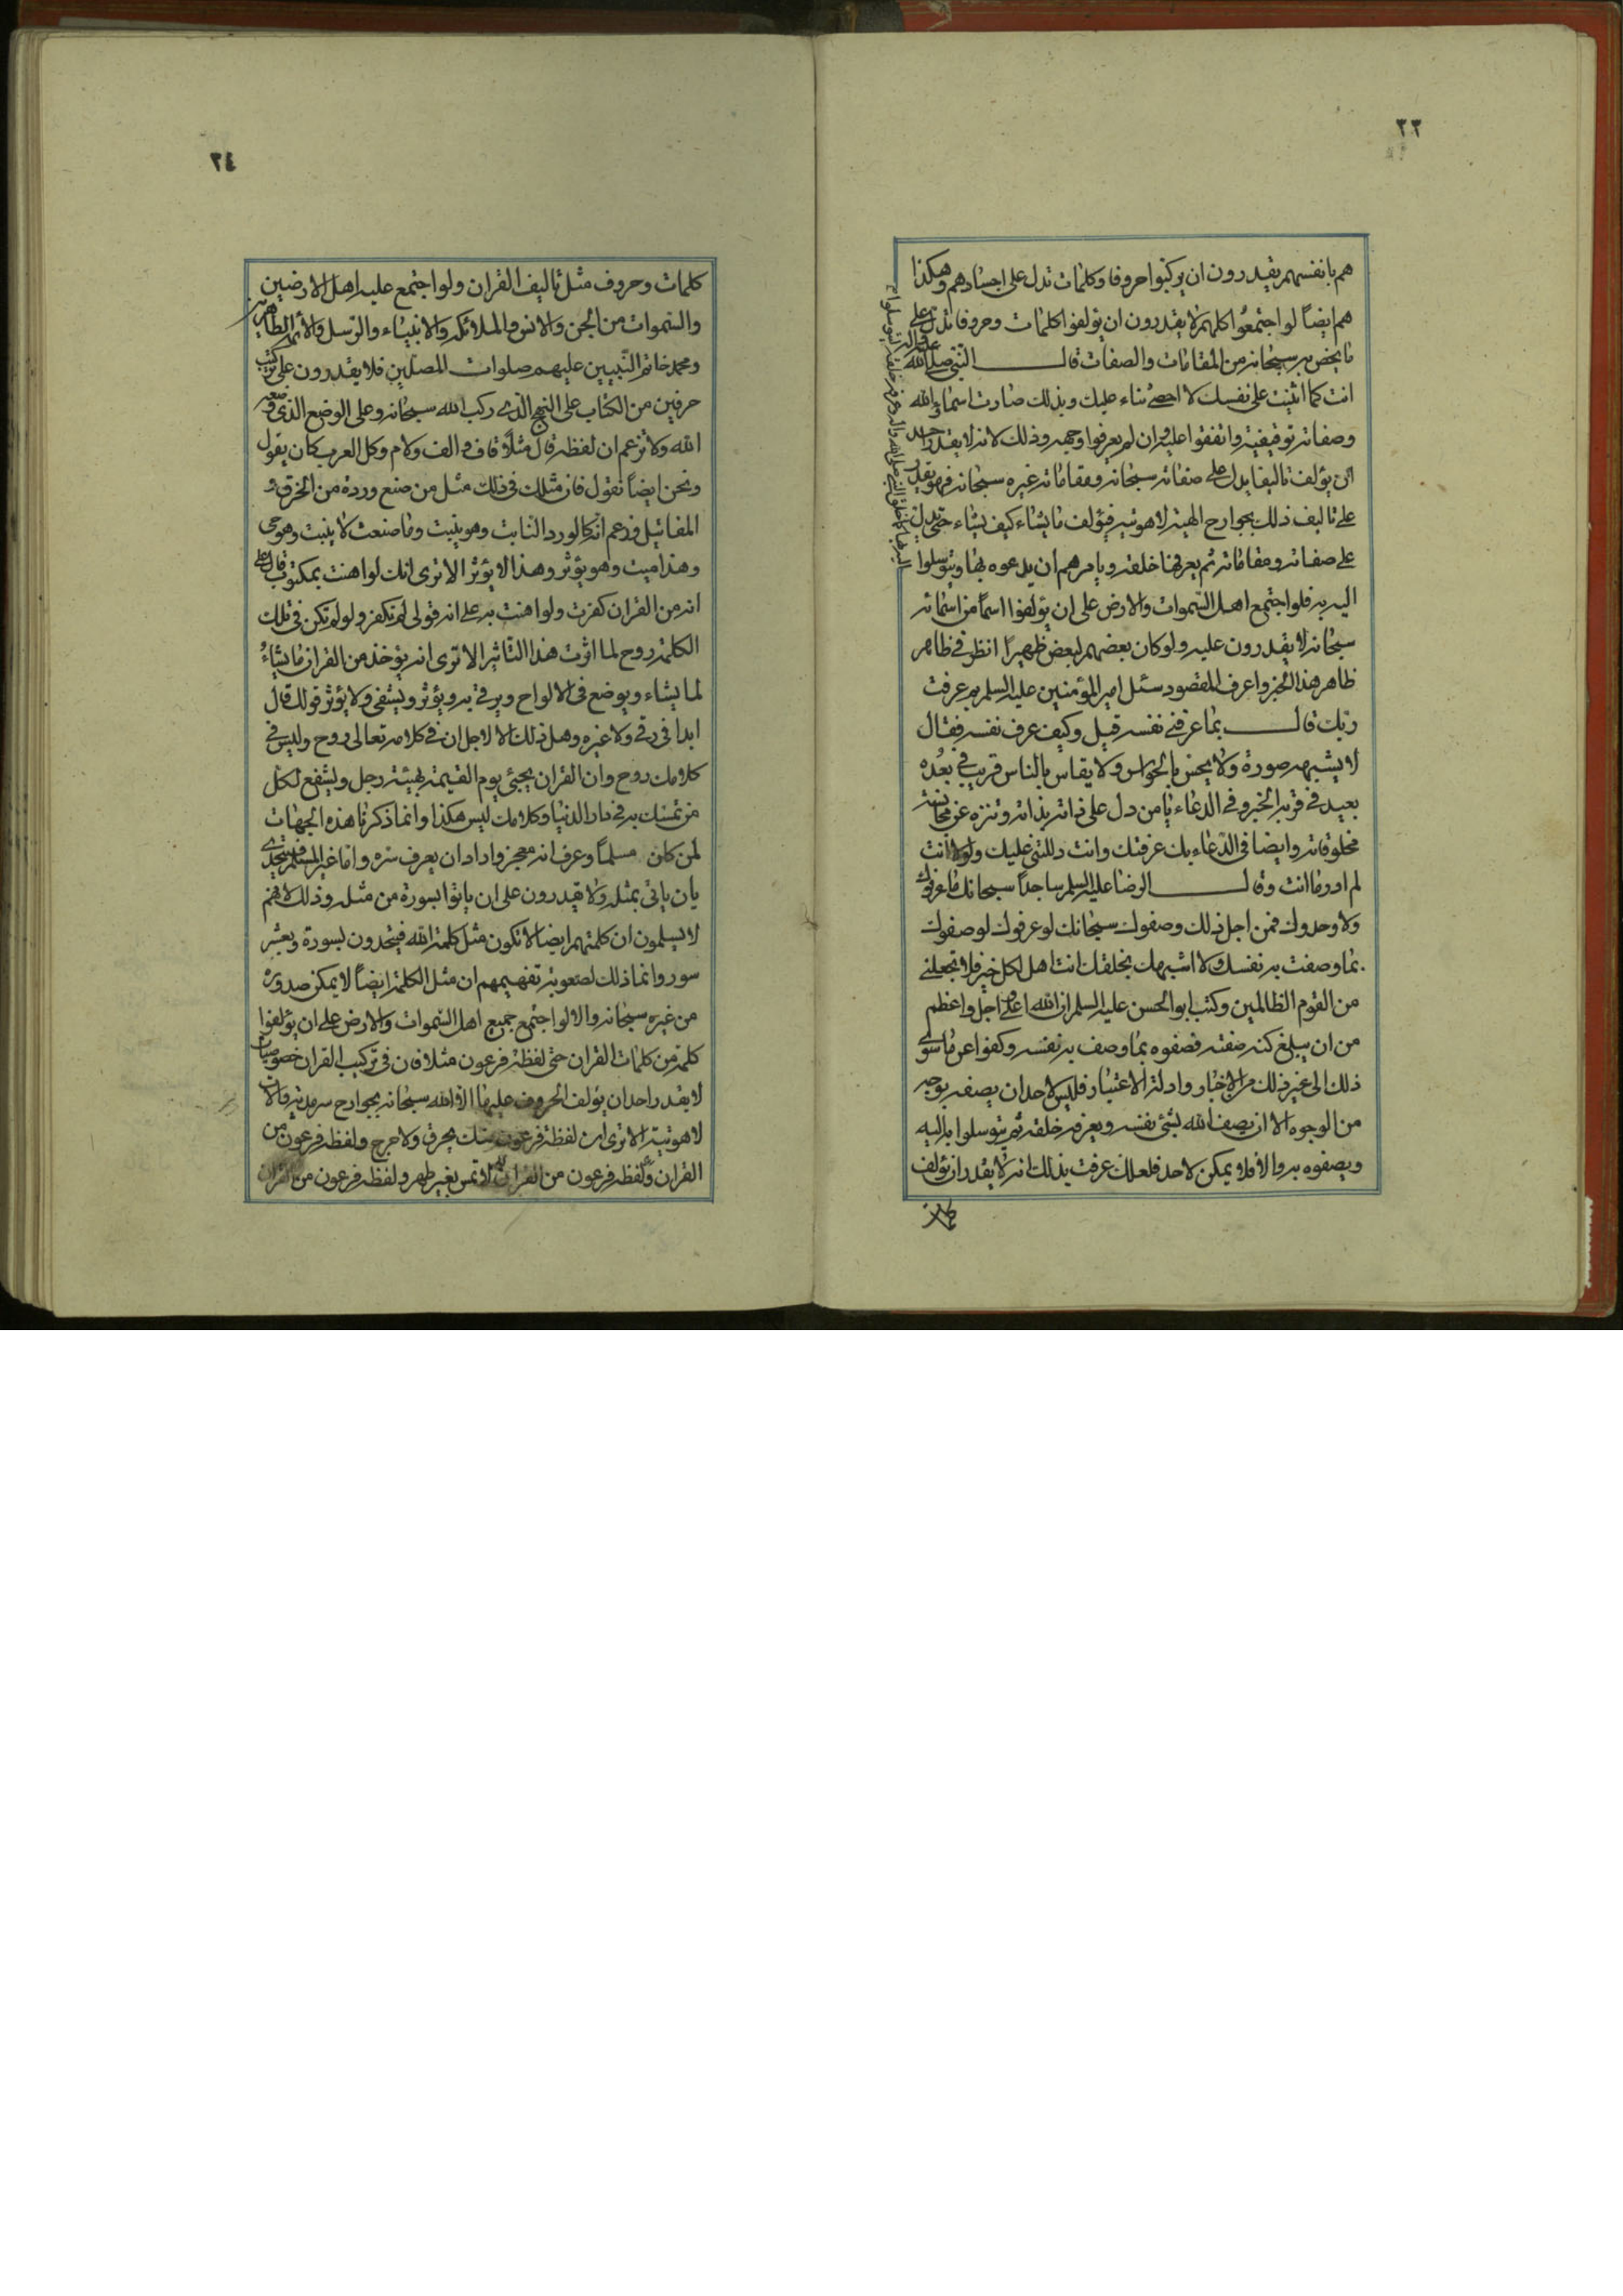 ٢٣
هم بانفسهم يقدرون ان يركبوا حروفا وكلمات تدل على اجسادهم وهكذا
هم ايضاً لو اجتمعوا كلهم لا يقدرون ان يؤلفوا كلمات وحروفا تدل على
ما يخص به سبحانه من المقامات والصفات قال النبي صلى الله عليه واله
انت كما اثنيت على نفسك لا احصي ثناء عليك وبذلك صارت اسماء الله
وصفاته توقيفية واتفقوا عليه وان لم يعرفوا وجهه وذلك لانه لا يقدر احد
ان يؤلف تاليفا يدل على صفاته سبحانه ومقاماته غيره سبحانه فهو يقدر
على تاليف ذلك بجوارح الهية لاهوتية فيؤلف ما يشاء كيف يشاء حتى تدل
على صفاته ومقاماته ثم يعرفها خلقه ويامرهم ان يدعوه بها ويتوسلوا
اليه به فلو اجتمع اهل السموات والارض على ان يؤلفوا اسماً من اسمائه
سبحانه لا يقدرون عليه ولو كان بعضهم لبعض ظهيرا انظر في ظاهر
ظاهر هذا الخبر واعرف المقصود سئل امير المؤمنين عليه السلم بم عرفت
ربك قال بما عرفني نفسه قيل وكيف عرف نفسه فقال
لا يشبهه صورة ولا يحس بالحواس ولا يقاس بالناس قريب في بعده
بعيد في قربه الخبر وفي الدعاء يا من دل على ذاته بذاته وتنزه عن مجانسة
مخلوقاته وايضا في الدعاء بك عرفتك وانت دللتني عليك ولولا انت
لم ادر ما انت وقال الرضا عليه السلم ساجداً سبحانك ما عرفوك
ولا وحدوك فمن اجل ذلك وصفوك سبحانك لو عرفوك لوصفوك
بما وصفت به نفسك ولا اشبهك بخلقك انت اهل لكل خير فلا تجعلني
من القوم الظالمين وكتب ابو الحسن عليه السلم ان الله اعلى واجل واعظم
من ان يبلغ كنه صفته فصفوه بما وصف به نفسه وكفوا عن ما سوى
ذلك الى غير ذلك من الاخبار وادلة الاعتبار فليس لاحد ان يصفه بوجه
من الوجوه الا ان يصف الله بشئ نفسه ويعرفه خلقه ثم يتوسلوا به اليه
ويصفوه به والا فلا يمكن لاحد فلعلك عرفت بذلك انه لا يقدر ان يؤلف
٢٤
كلمات وحروف مثل تاليف القران ولو اجتمع عليه اهل الارضين
والسموات من الجن والانس والملائكة والانبياء والرسل والائمة الطاهرين
ومحمد خاتم النبيين عليهم صلوات المصلين فلا يقدرون على تركيب
حرفين من الكتاب على النهج الذي ركب الله سبحانه وعلى الوضع الذي وضعه
الله ولا تزعم ان لفظة قال مثلاً قاف والف ولام وكل العرب كان يقول
ونحن ايضاً نقول فان مثلك في ذلك مثل من صنع وردة من الخرق و
المفاتيل فزعم انه كالورد النابت وهو ينبت وما صنعت لا ينبت وهو حي
وهذا ميت وهو يؤثر وهذا لا يؤثر الا ترى انك لو اهنت بمكتوب قال على
انه من القران كفرت ولو اهنت به على انه قولي لم تكفر ولو لم تكن في تلك
الكلمة روح لما اثرت هذا التاثير الا ترى انه يؤخذ من القران ما يشاء
لما يشاء ويوضع في الالواح ويرقى به ويؤثر ويشفي ولا يؤثر قولك قال
ابدا في رقى ولا غيره وهل ذلك الا لاجل ان في كلامه تعالى روح وليس في
كلامك روح وان القران يجيئ يوم القيمة بهيئة رجل ويشفع لكل
من تمسك به في دار الدنيا وكلامك ليس هكذا وانما ذكرنا هذه الجهات
لمن كان مسلماً وعرف انه معجز واراد ان يعرف سره واما غير المسلم فيتحدى
بان ياتي بمثله ولا يقدرون على ان ياتوا بسورة من مثله وذلك لانهم
لا يسلمون ان كلمتهم ايضا لا تكون مثل كلمة الله فيتحدون بسورة وبعشر
سور وانما ذلك لصعوبة تفهيمهم ان مثل الكلمة ايضاً لا يمكن صدوره
من غيره سبحانه والا لو اجتمع جميع اهل السموات والارض على ان يؤلفوا
كلمة من كلمات القران حتى لفظة فرعون مثلا فان في تركيب القران خصوصيات
لا يقدر احد ان يؤلف الحروف عليها الا الله سبحانه بجوارح سرمدية والات
لاهوتية الا ترى ان لفظة فرعون منك يحرق ولا حرج ولفظه فرعون من
القران ولفظه فرعون من القران لا تمس بغير طهر ولفظه فرعون من القران